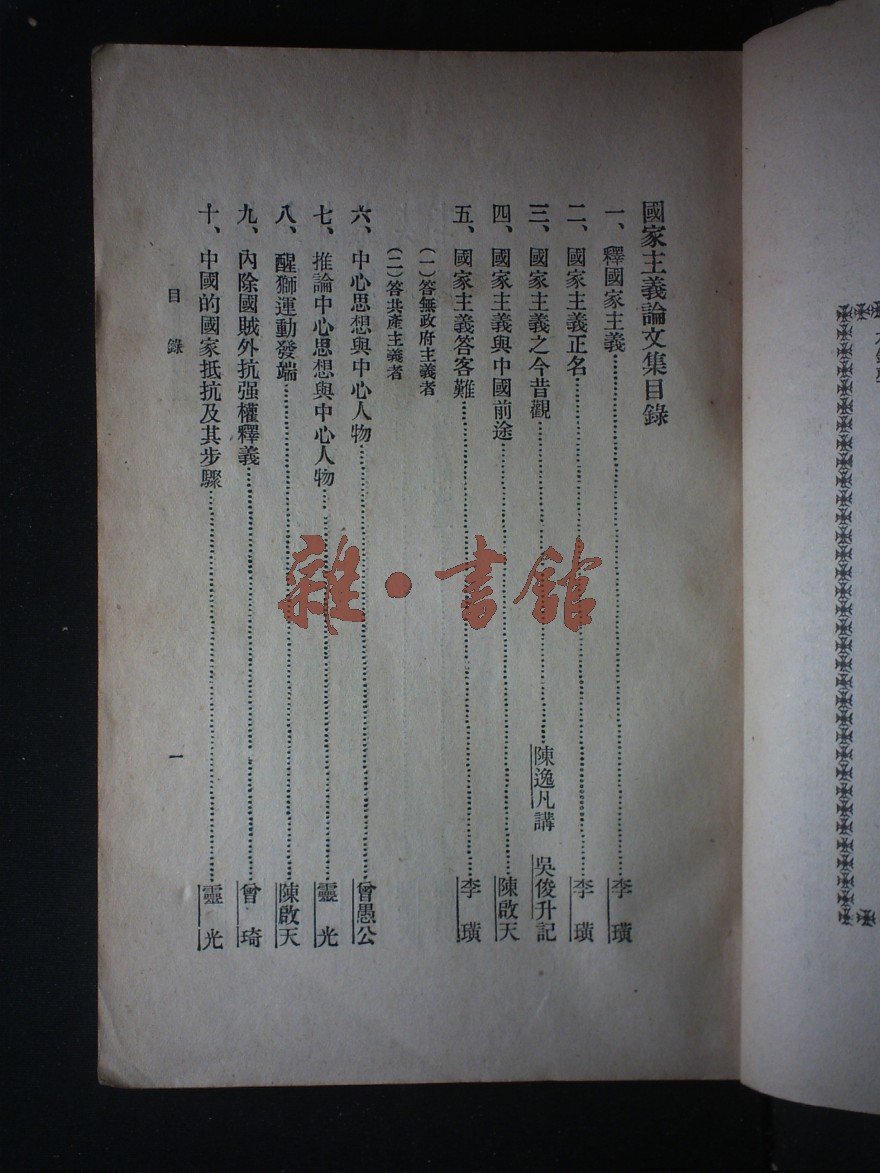 國家主義論文集目錄
一、釋國家主義……李璜
二、國家主義正名……李璜
三、國家主義之今昔觀……陳逸凡講 吳俊升記
四、國家主義與中國前途……陳啟天
五、國家主義答客難……李璜
(一)答無政府主義者
(二)答共產主義者
六、中心思想與中心人物……曾愚公
七、推論中心思想與中心人物……靈光
八、醒獅運動發端……陳啟天
九、內除國賊外抗强權釋義……曾琦
十、中國的國家抵抗及其步驟……靈光
目錄 一
雜·書館